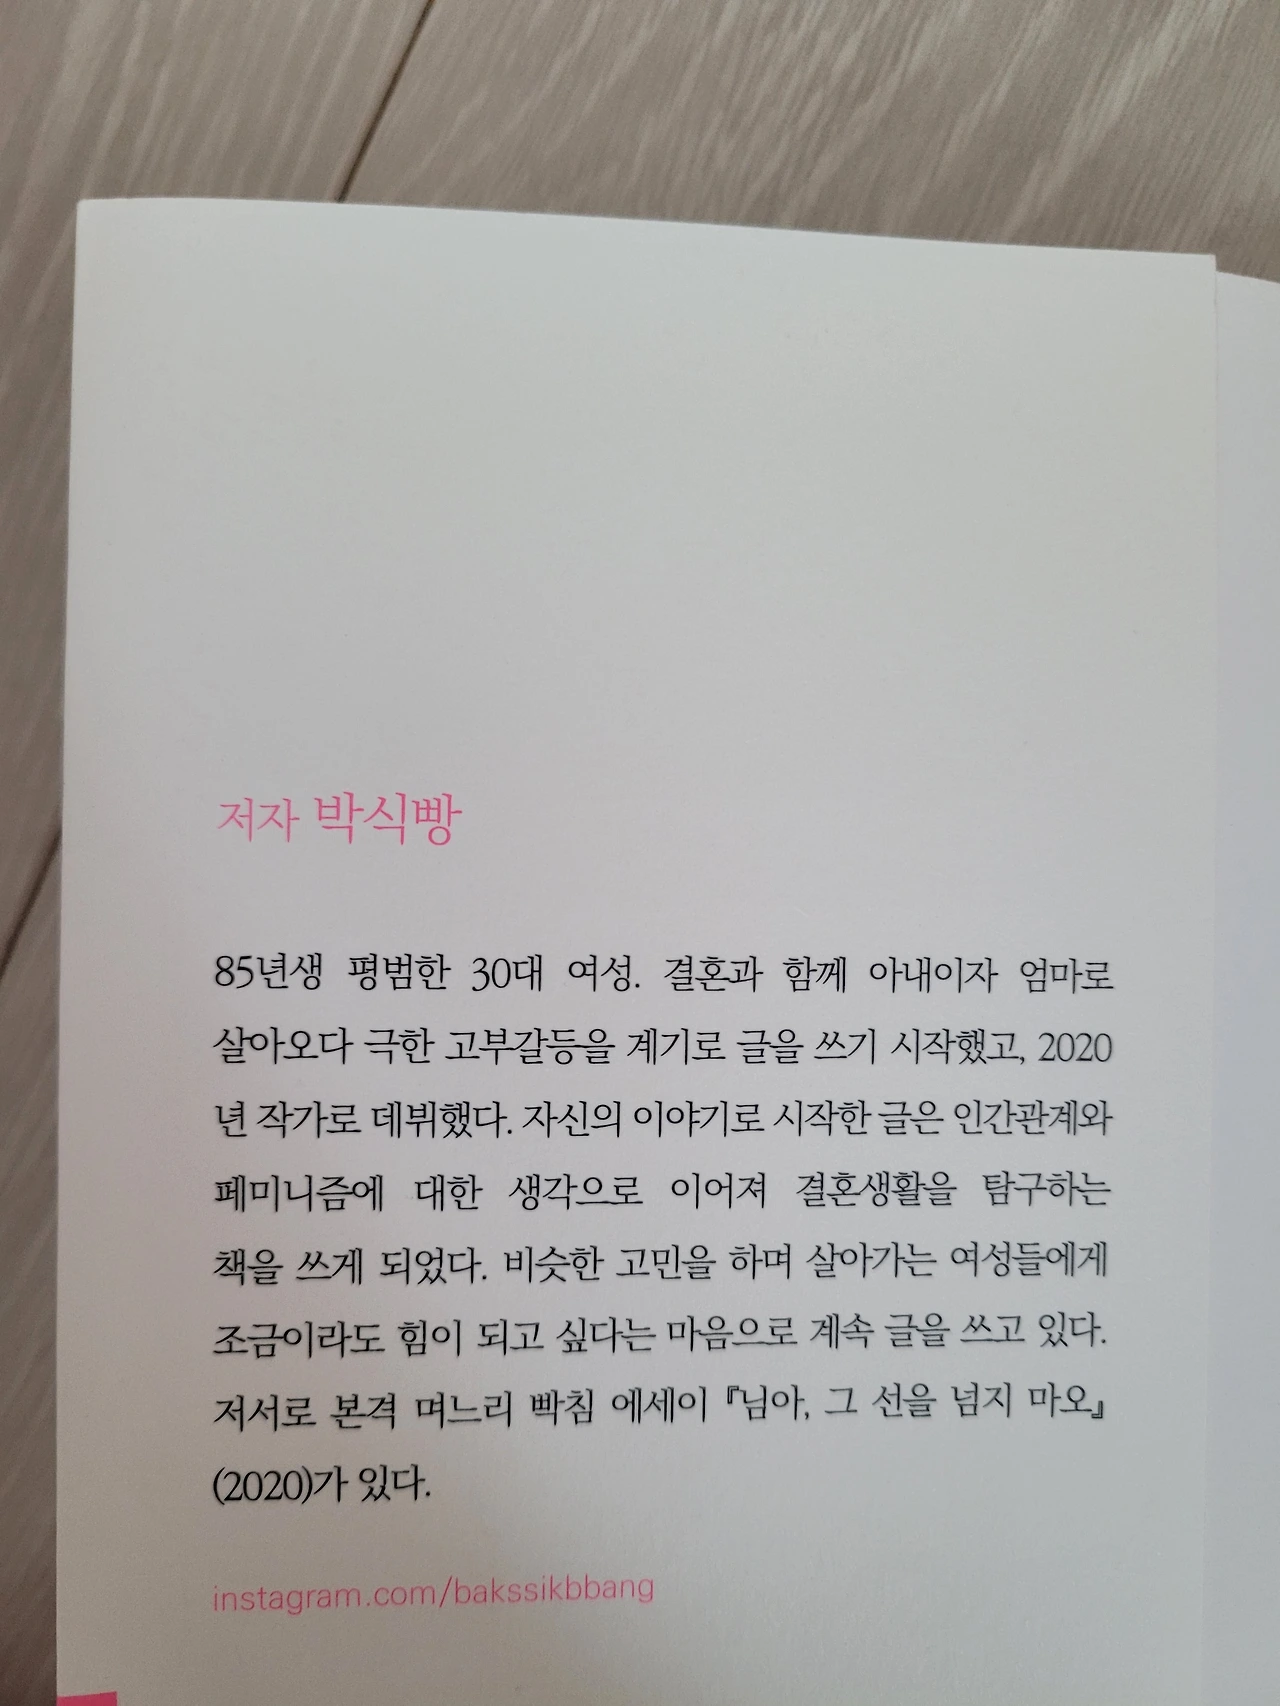 저자 박식빵
85년생 평범한 30대 여성. 결혼과 함께 아내이자 엄마로
살아오다 극한 고부갈등을 계기로 글을 쓰기 시작했고, 2020
년 작가로 데뷔했다. 자신의 이야기로 시작한 글은 인간관계와
페미니즘에 대한 생각으로 이어져 결혼생활을 탐구하는
책을 쓰게 되었다. 비슷한 고민을 하며 살아가는 여성들에게
조금이라도 힘이 되고 싶다는 마음으로 계속 글을 쓰고 있다.
저서로 본격 며느리 빡침 에세이 『님아, 그 선을 넘지 마오』
(2020)가 있다.
instagram.com/bakssikbbang